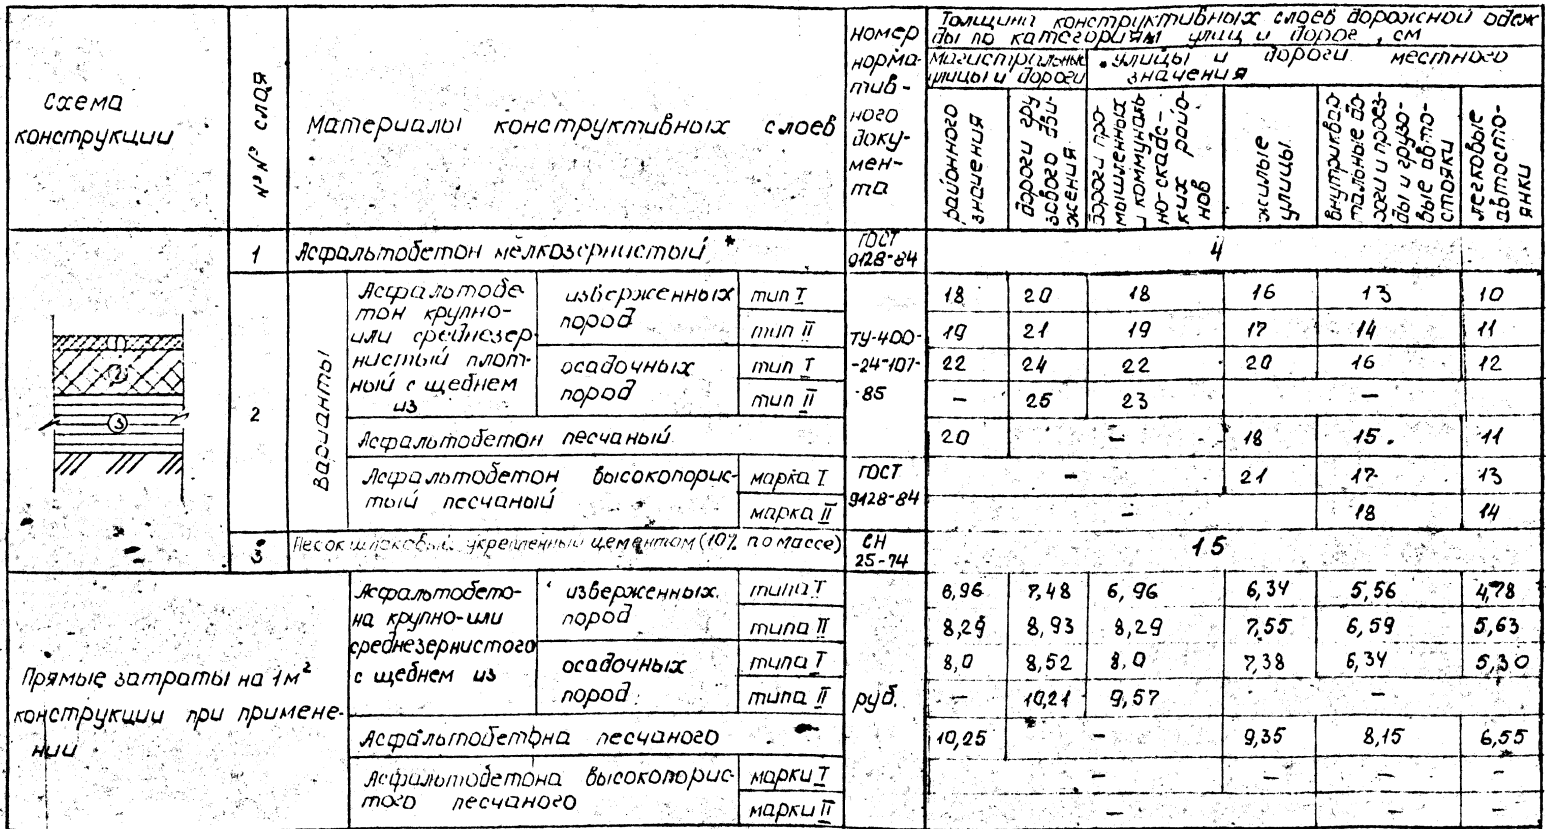 Схема
конструкции
№№ слоя
Материалы конструктивных слоев
номер
норма-
тив-
ного
доку-
мен-
та
Толщина конструктивных слоев дорожной одеж
ды по категориям улиц и дорог, см
Магистральные
улицы и дороги
улицы и дороги местного
значения
районного
значения
дороги гру
зового дви-
жения
дороги про-
мышленных
и коммуналь-
но-складс-
ких райо-
нов
жилые
улицы
внутриквар
тальные до
роги и проез-
ды и грузо-
вые авто-
стоянки
легковые
автостоя-
нки
1 Асфальтобетон мелкозернистый * ГОСТ
9128-84 4
2
3
2
Варианты
Асфальтобе
тон крупно-
или среднезер-
нистый плот-
ный с щебнем
из
изверженных
пород
тип I 18 20 18 16 13 10
тип II 19 21 19 17 14 11
осадочных
пород
тип I 22 24 22 20 16 12
тип II – 25 23 –
ТУ-400-
-24-107-
-85
Асфальтобетон песчаный 20 – 18 15 11
Асфальтобетон высокопорис-
тый песчаный
марка I – 21 17 13
марка II – 18 14
ГОСТ
9128-84
3 Песок шлаковый укрепленный цементом (10% по массе) СН
25-74 15
Прямые затраты на 1м²
конструкции при примене-
нии
Асфальтобето-
на крупно-или
среднезернистого
с щебнем из
изверженных
пород
типа I 6,96 7,48 6,96 6,34 5,56 4,78
типа II 8,29 8,93 8,29 7,55 6,59 5,63
осадочных
пород
типа I 8,0 8,52 8,0 7,38 6,34 5,30
типа II – 10,21 9,57 –
руб.
Асфальтобетона песчаного 10,25 – 9,35 8,15 6,55
Асфальтобетона высокопорис-
того песчаного
марки I – – – –
марки II – – –